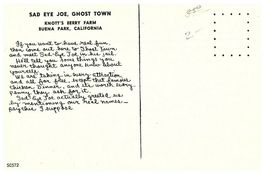 SAD EYE JOE, GHOST TOWN
KNOTT'S BERRY FARM
BUENA PARK, CALIFORNIA
If you want to have real fun,
then come out here to Ghost Town
and meet Sad Eye Joe in his jail.
He'll tell you some things you
never thought anyone knew about
yourself.
We are taking in every attraction
and all for free, except that famous
Chicken Dinner, and its worth every
penny they ask for it.
Sad Eye Joe actually greeted us
by mentioning our real names -
psychic I suppose
SC572